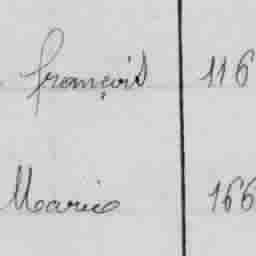 françois 116
Marie 166